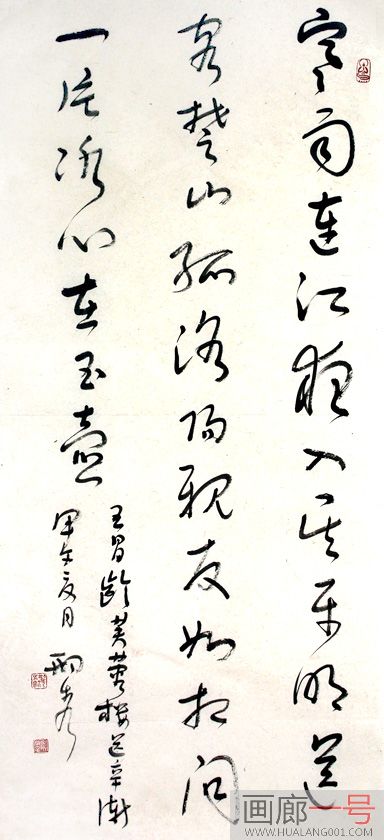 寒雨連江夜入吳平明送
客楚山孤洛陽親友如相問
一片冰心在玉壺
王昌齡芙蓉樓送辛漸
甲午夏月
画廊一号
WWW.HUALANG001.COM